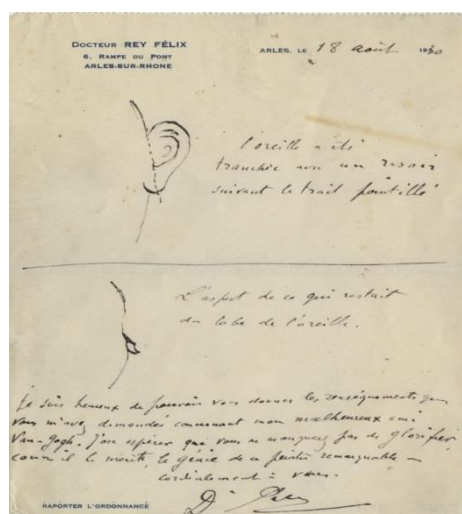 DOCTEUR REY FÉLIX
6. RAMPE DU PONT
ARLES-SUR-RHONE
ARLES, LE 18 août 1930
l'oreille a été
tranchée avec un rasoir
suivant le trait pointillé
L'aspect de ce qui restait
du lobe de l'oreille.
Je suis heureux de pouvoir vous donner les renseignements que
vous m'avez demandés concernant mon malheureux ami
Van-Gogh. J'ose espérer que vous ne manquerez pas de glorifier
comme il le mérite, le génie de ce peintre remarquable —
cordialement à vous.
Dr Rey
RAPORTER L'ORDONNANCE